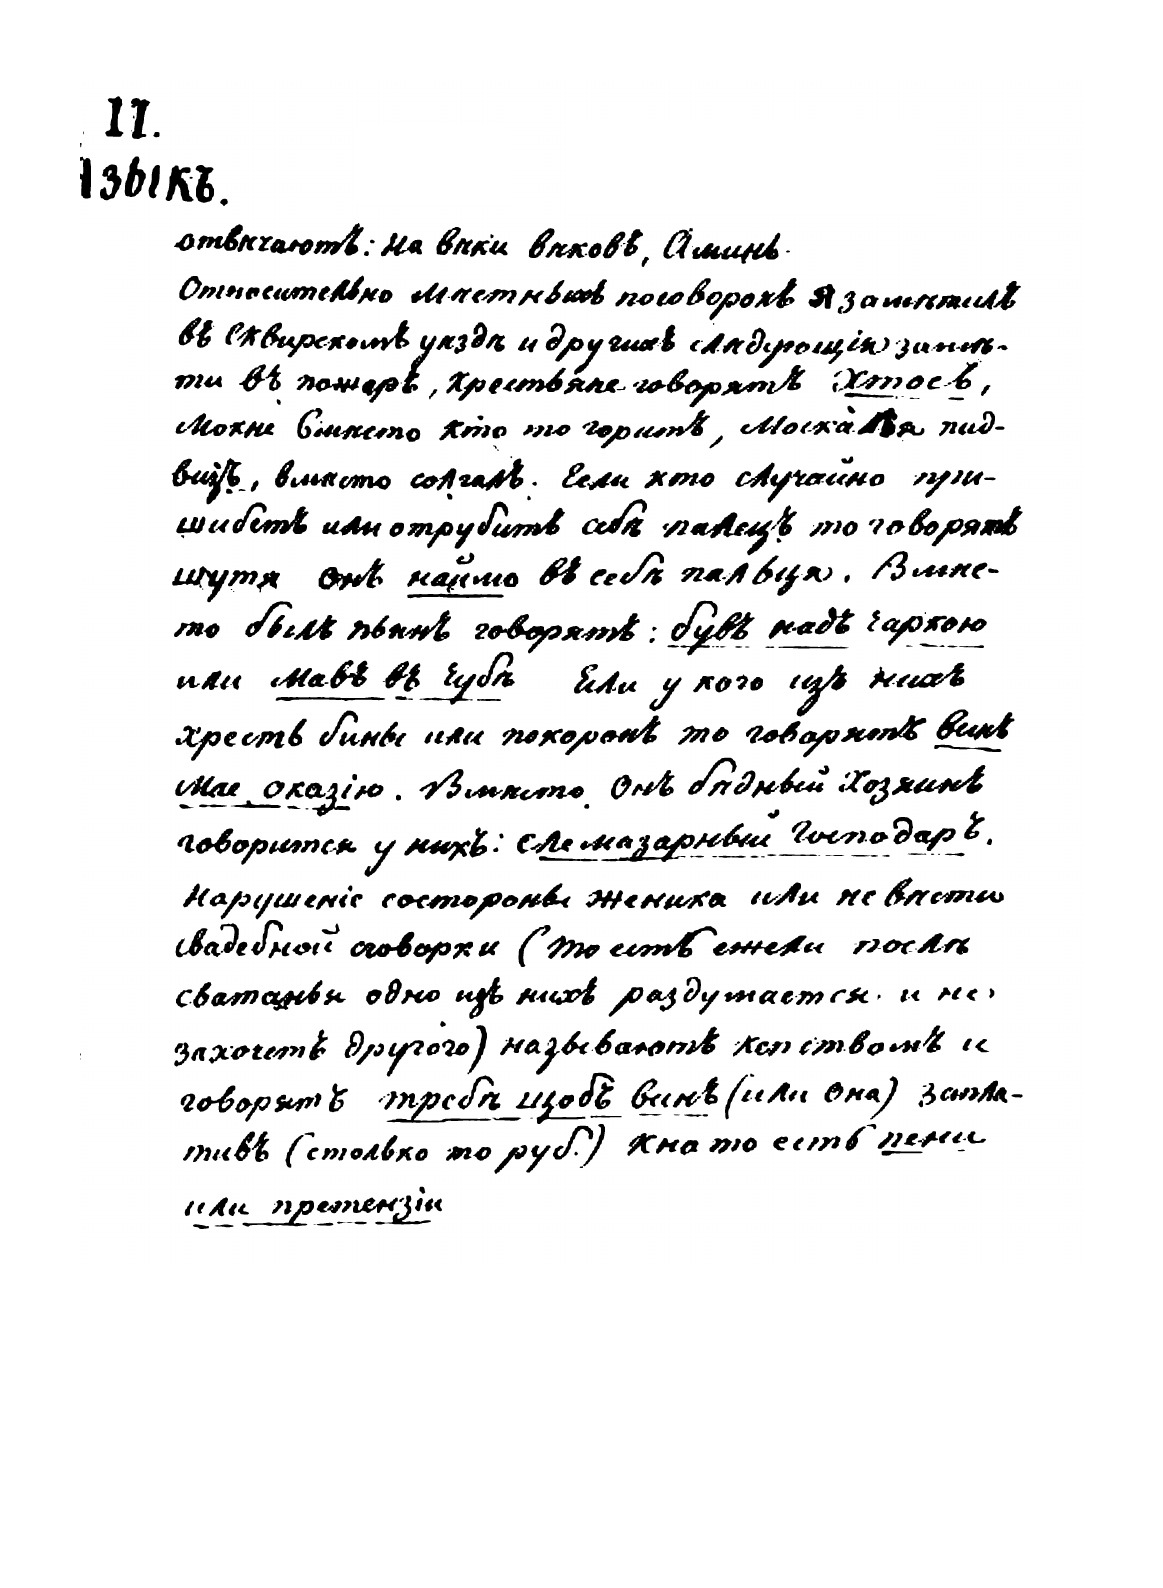 II.
Языкъ.
отвѣчаютъ: на вѣки вѣковъ, Аминь.
Относительно мѣстныхъ поговорокъ я замѣтилъ
въ Сквирскомъ уѣздѣ и другихъ слѣдующія замѣ-
ти въ пожаръ, хрестьяне говорятъ Хтось,
мокне вмѣсто кто то горитъ, Москаля пид-
визъ, вмѣсто солгалъ. Если кто случайно при-
шибетъ или отрубитъ себѣ палецъ то говорятъ
шутя онъ наймо въ себѣ пальця. Вмѣс-
то былъ пьянъ говорятъ: бувъ надъ чаркою
или мавъ въ чубѣ Если у кого изъ нихъ
хрестьбины или похоронъ то говорятъ винъ
мае оказію. Вмѣсто онъ бѣдный Хозяинъ
говорится у нихъ: слемазарный Господаръ.
Нарушеніе состороны жениха или невѣсты
свадебной сговорки (то есть ежели послѣ
сватанья одно изъ нихъ раздумается и не
захочетъ другого) называютъ и
говорятъ треба щобъ винъ (или она) запла-
тивъ (столько то руб.) то есть пени
или претензіи